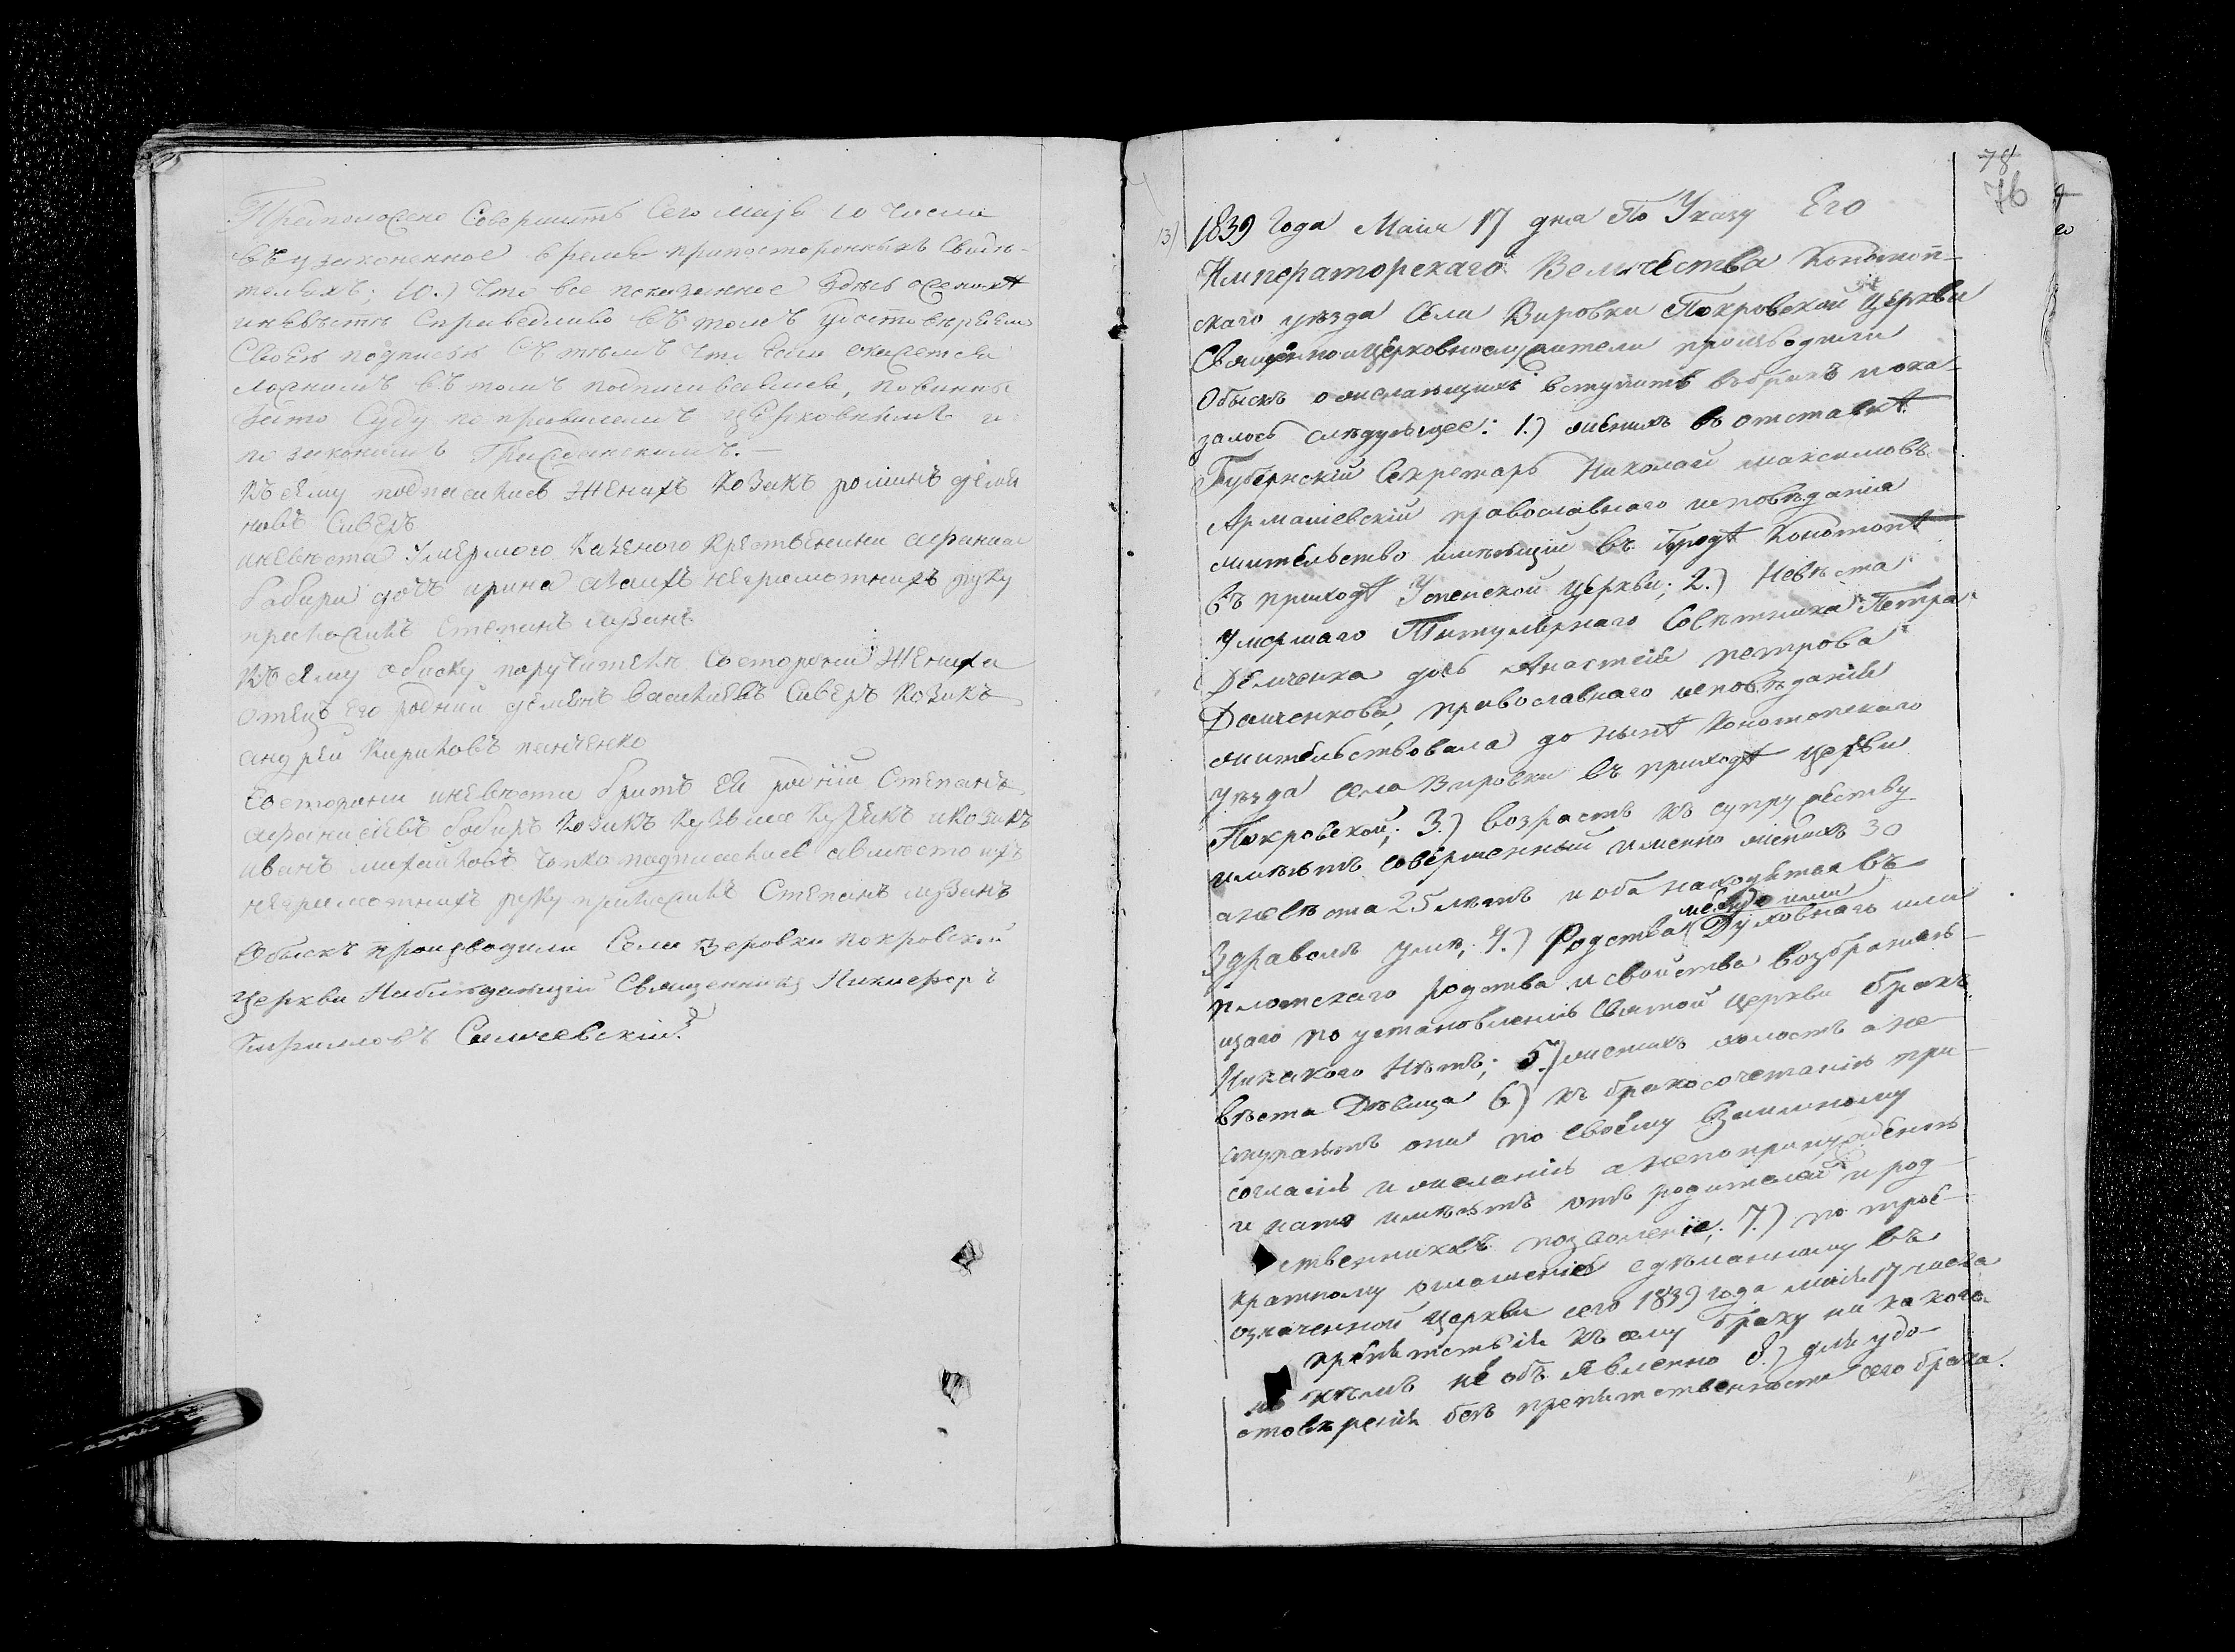 Предположено Совершить Сего Маія 10 числа
въ узаконенное время при постороннихъ Свидѣ-
теляхъ; 10.) Что все показанное здѣсь о женихѣ
и невѣстѣ Справедливо въ томъ удостовѣряемъ
Своею подписью Съ тѣмъ что если окажется
ложнымъ въ томъ подписавшіеся, повинны
Суду по правиламъ церковнымъ и
по законамъ Гражданскимъ. —
Къ сему подписались женихъ козакъ
новъ Сиверъ
и невѣста Умершого Казеного Крестьенина
бабира дочъ ирина аваихъ неграмотнихъ руку
приложилъ Степанъ
Къ сему обиску поручители. Со сторони жениха
отецъ его родній демянъ василіевъ Сиверъ козакъ
андрей Кириловъ панченко
Со сторони и невѣсти братъ ей родній Степанъ
бабиръ козакъ кузьма и козакъ
иванъ михайловъ подписались а вмѣсто ихъ
неграмотнихъ руку приложилъ Степанъ
Обыскъ производили Села Вировки Покровской
Церкви Наблюдающій Священникъ Никифоръ
Кирилловъ Самчевскій
78
76
13) 1839 Года Маія 17 дня По Указу Его
Императорскаго Величества Конотоп-
скаго уѣзда Села Вировки Покровской Церкви
Священно и Церковнослужители производили
Обыскъ о желающихъ вступить въ бракъ и ока-
залось слѣдующее: 1.) женихъ въ отставкѣ
Губернскій Секретарь Николай Максимовъ
Армашевскій православнаго исповѣданія
жительство имѣющій въ Городѣ Конотопѣ
въ приходѣ Успенской Церкви; 2.) Невѣста
Умершаго Титулярнаго Совѣтника Петра
Демченка дочь Анастасія петрова
Демченкова, православнаго исповѣданія
жительствовала до нынѣ Конотопскаго
уѣзда села Вировки въ приходѣ церкви
Покровской; 3.) возрастъ къ супружеству
имѣютъ совершенный именно женихъ 30
а невѣста 25 лѣтъ и оба находятся въ
Здравомъ умѣ, 4.) Родства между ими Духовнаго или
плотскаго родства и свойства возбраняю-
щаго по установленію Святой церкви бракъ
Никакого Нѣтъ; 5.) женихъ холостъ а не-
вѣста Дѣвица 6.) къ бракосочетанію при-
ступаютъ они по своему взаимному
согласію и желанію а не по принужденію
и на то имѣютъ отъ родителей и род-
ственниковъ позволеніе; 7.) по трое-
кратному оглашенію сдѣланному въ
означенной Церкви сего 1839 года маія 17 числа
препятствія къ сему браку ни какого
кѣмъ не объявленно 8.) для удо-
стовѣренія безъ препятственности сего брака.